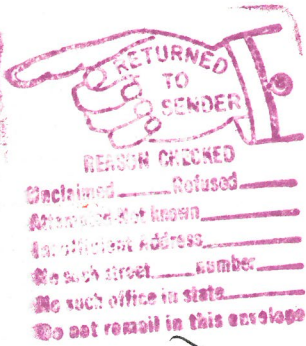 RETURNED
TO
SENDER
REASON CHECKED
Unclaimed Refused
Attempted Not known
Insufficient Address
No such street number
No such office in state
Do not remail in this envelope